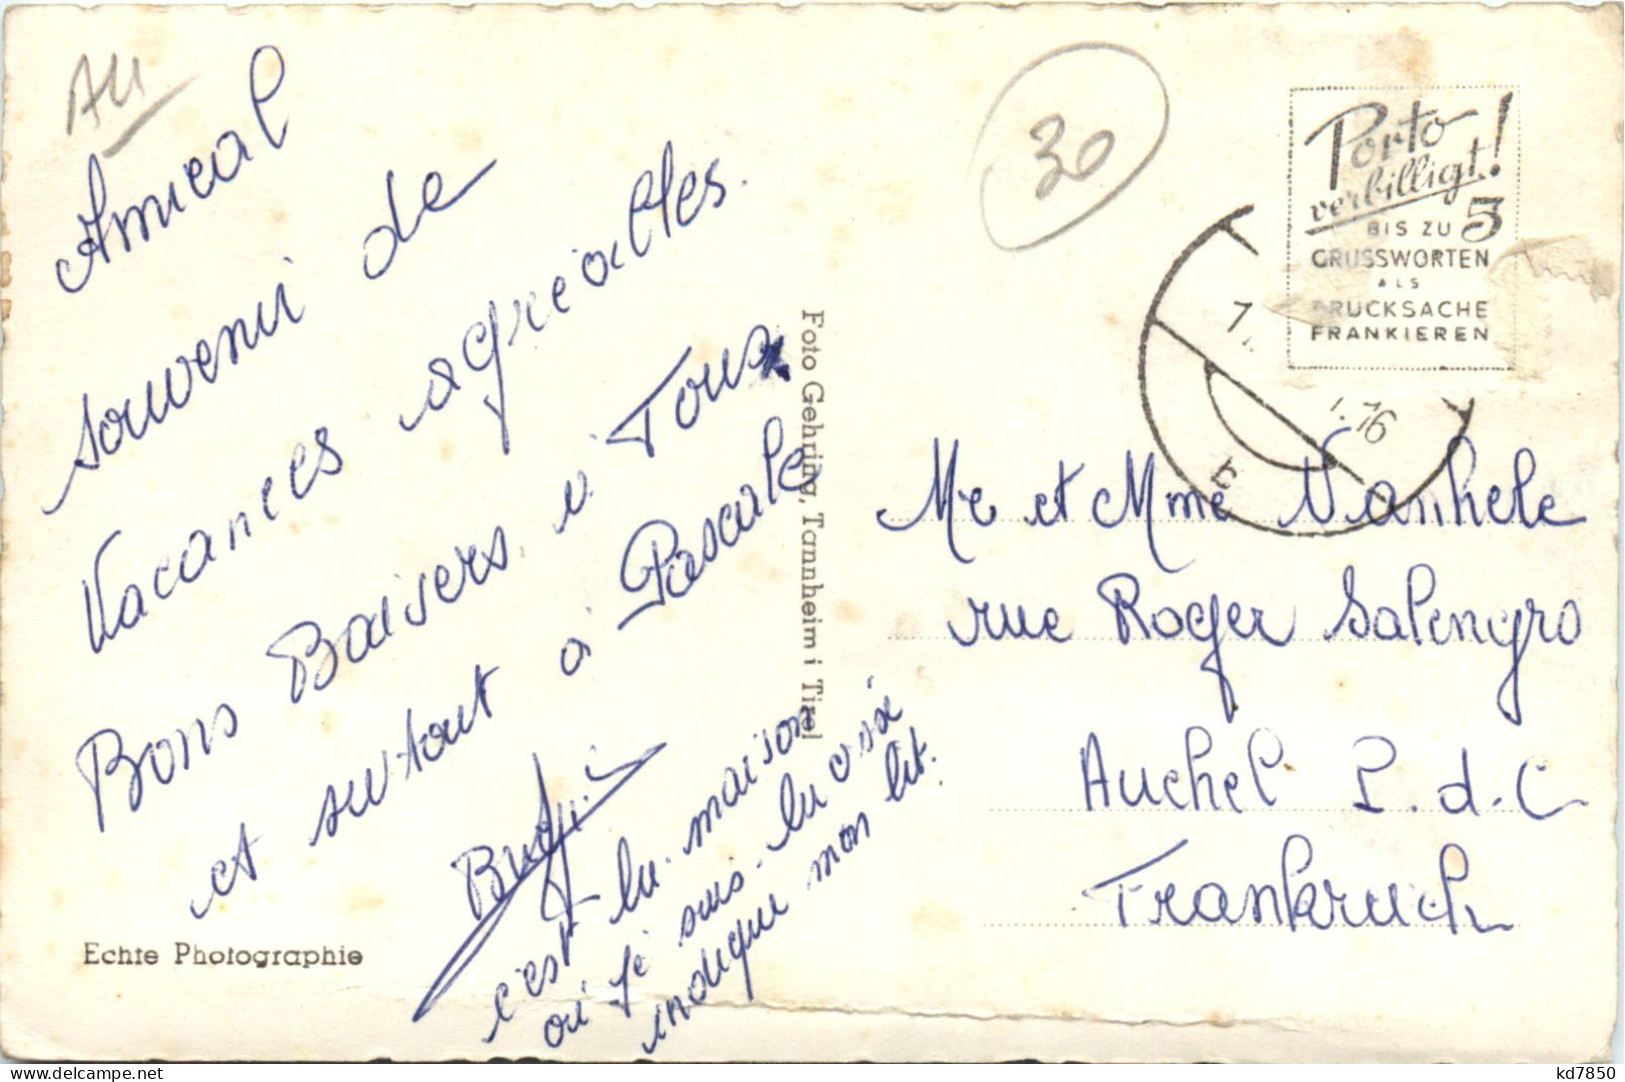 AU
30
Amical
souvenir de
Vacances agréables.
Bons Baisers à Tous
et surtout à Pascale
c'est la maison
où je suis. la croix
indique mon lit.
Echte Photographie
Foto Gehring, Tannheim i Tirol
Porto
verbilligt!
BIS ZU 5
GRUSSWORTEN
ALS
DRUCKSACHE
FRANKIEREN
Me et Mme Vanhele
rue Roger Salengro
Auchel P.d.C
Frankreich
delcampe.net
kd7850